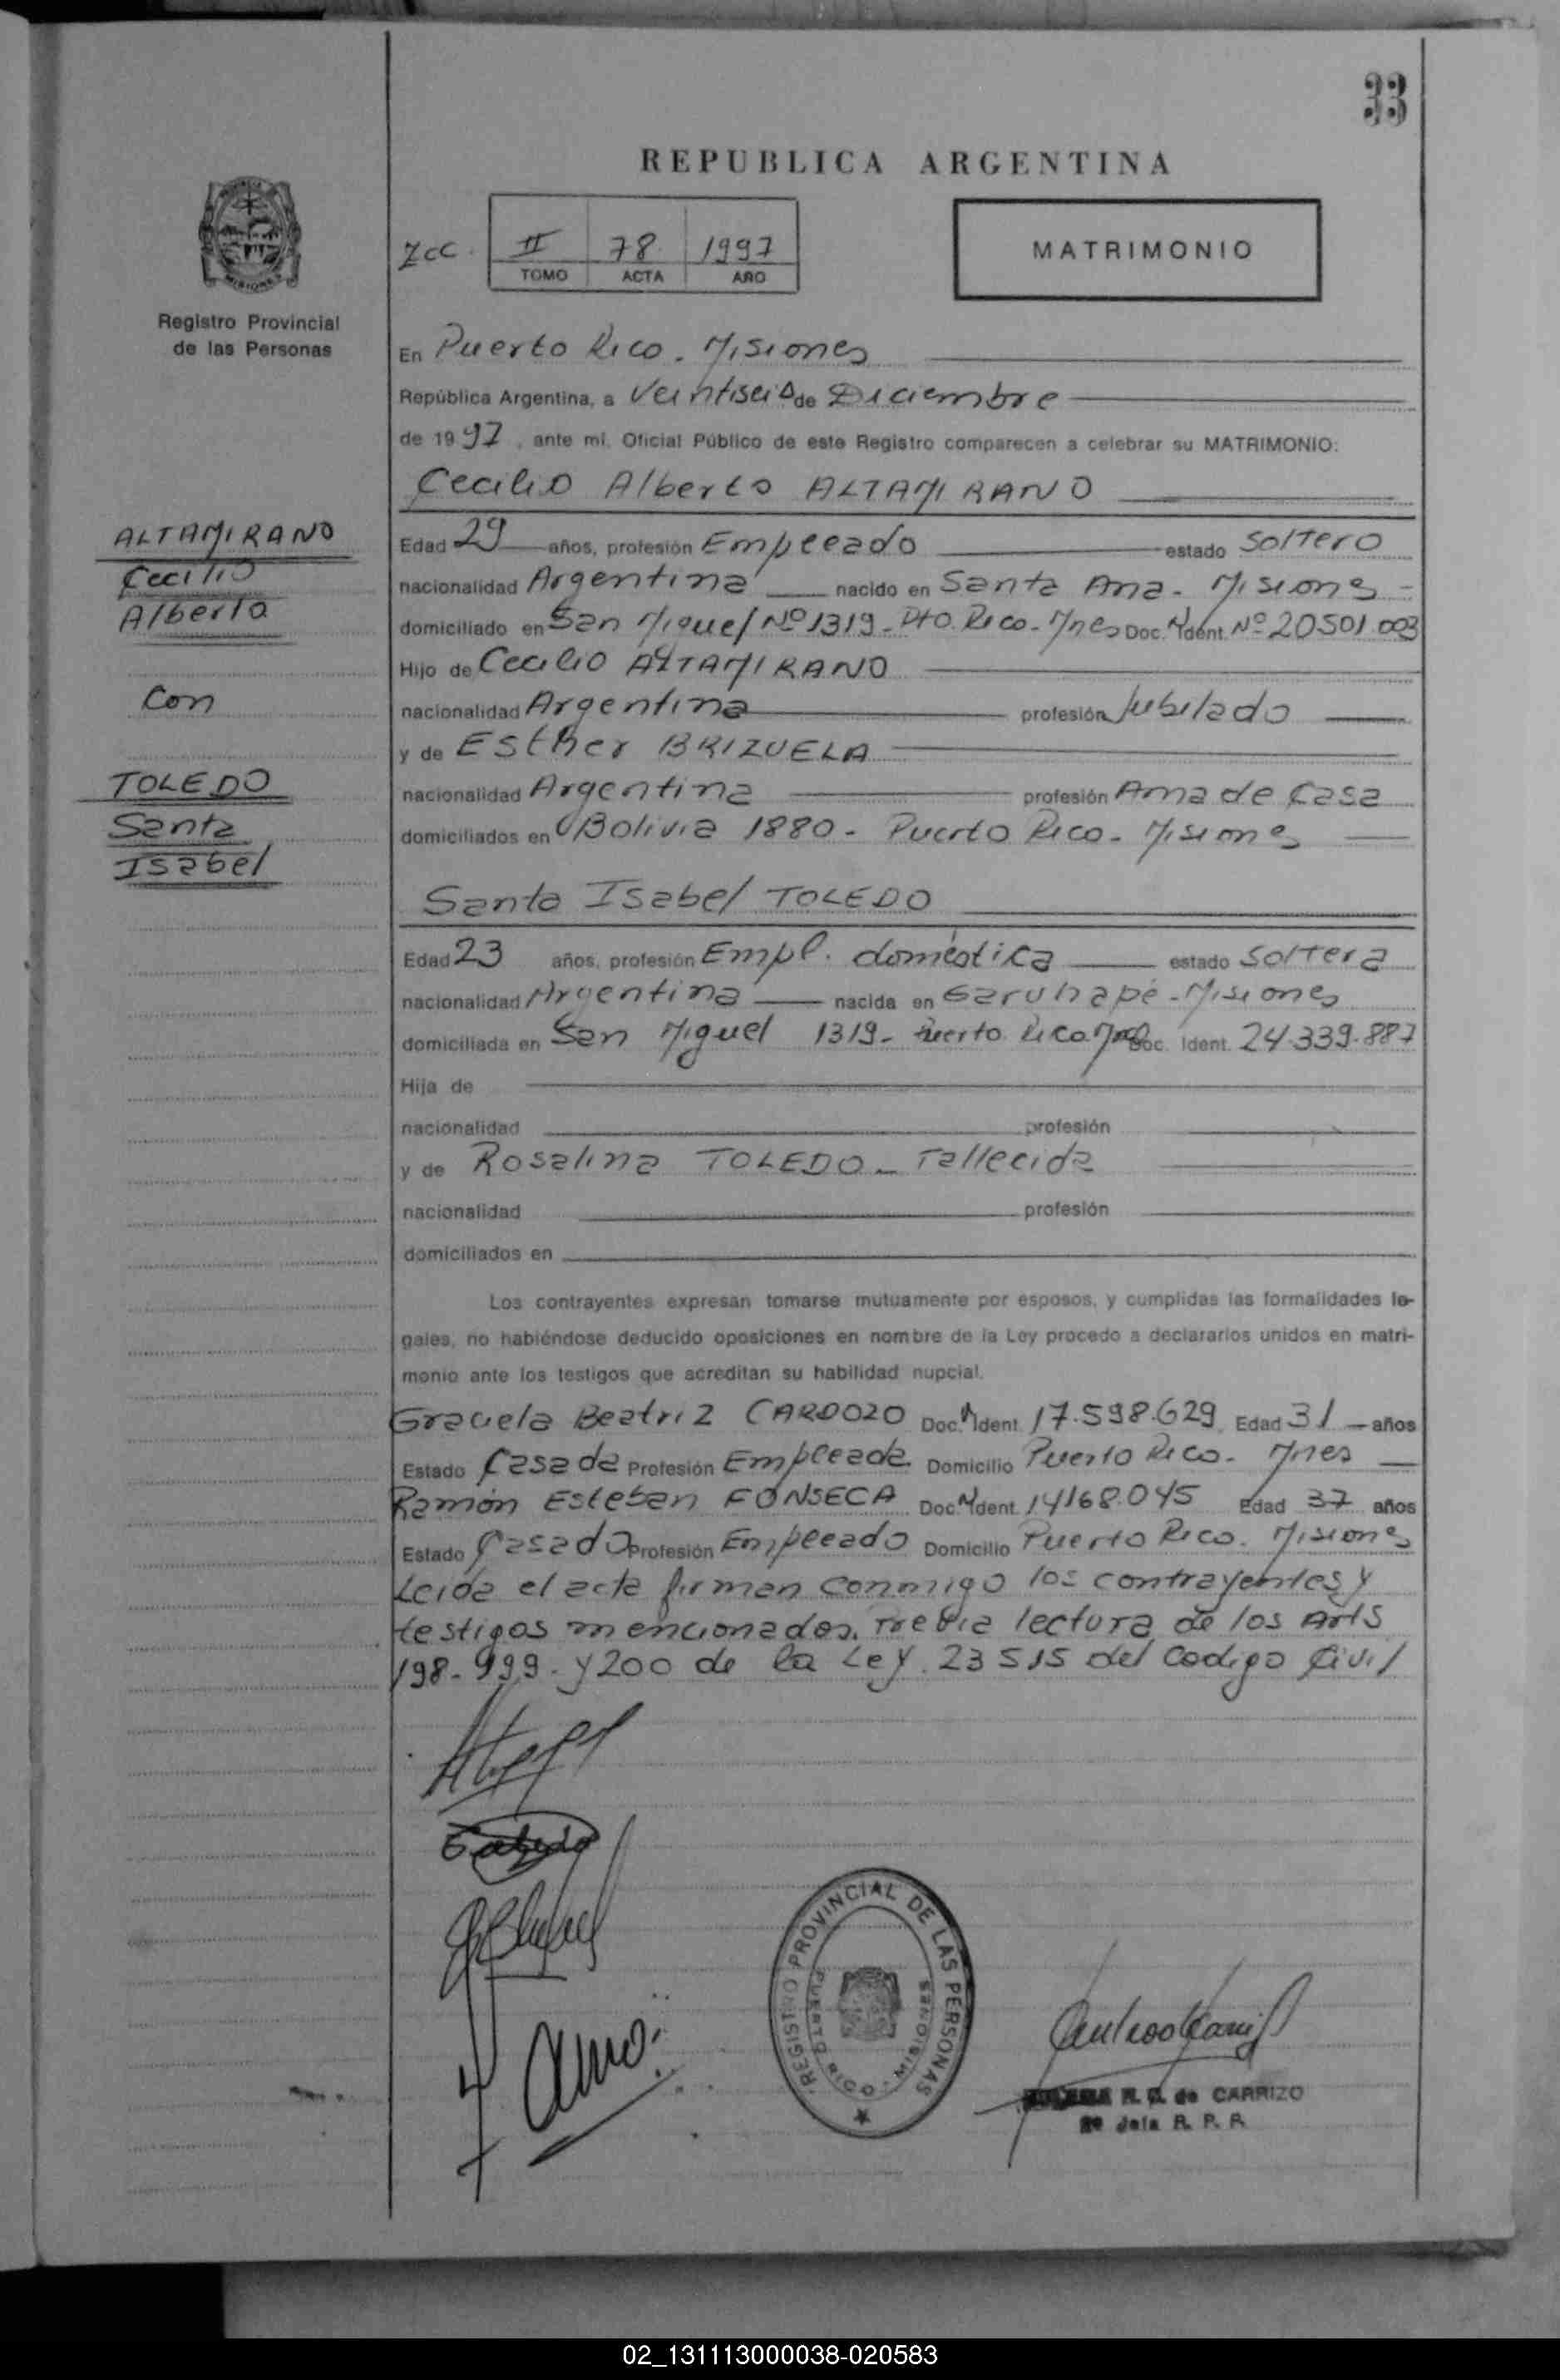 33
REPUBLICA ARGENTINA
Zcc. II 78 1997
TOMO ACTA AÑO
MATRIMONIO
Registro Provincial
de las Personas
En Puerto Rico. Misiones
República Argentina, a Veintiseis de Diciembre
de 1997, ante mí, Oficial Público de este Registro comparecen a celebrar su MATRIMONIO:
Cecilio Alberto ALTAMIRANO
ALTAMIRANO
Cecilio
Alberto
Con
TOLEDO
Santa
Isabel
Edad 29 años, profesión Empleado estado Soltero
nacionalidad Argentina nacido en Santa Ana - Misiones -
domiciliado en San Miguel Nº 1319 - Pto. Rico - Mnes Doc. N. Ident. Nº 20501.003
Hijo de Cecilio ALTAMIRANO
nacionalidad Argentina profesión Jubilado
y de Esther BRIZUELA
nacionalidad Argentina profesión Ama de Casa
domiciliados en Bolivia 1880 - Puerto Rico - Misiones
Santa Isabel TOLEDO
Edad 23 años, profesión Empl. doméstica estado Soltera
nacionalidad Argentina nacida en Garuhapé - Misiones
domiciliada en San Miguel 1319 - Puerto Rico Mnes Doc. Ident. 24.339.887
Hija de
nacionalidad profesión
y de Rosalina TOLEDO - Fallecida
nacionalidad profesión
domiciliados en
Los contrayentes expresan tomarse mutuamente por esposos, y cumplidas las formalidades le-
gales, no habiéndose deducido oposiciones en nombre de la Ley procedo a declararlos unidos en matri-
monio ante los testigos que acreditan su habilidad nupcial.
Graciela Beatriz CARDOZO Doc. N. Ident. 17.598.629 Edad 31 años
Estado Casada Profesión Empleada Domicilio Puerto Rico - Mnes
Ramón Esteban FONSECA Doc. N. Ident. 14168.045 Edad 37 años
Estado Casado Profesión Empleado Domicilio Puerto Rico. Misiones
Leida el acta firman conmigo los contrayentes y
testigos mencionados. Previa lectura de los Arts
198-999-y 200 de la Ley 23515 del Codigo Civil
REGISTRO PROVINCIAL DE LAS PERSONAS
PUERTO RICO - MISIONES
R. G. de CARRIZO
2º Jefa R. P. P.
02_131113000038-020583